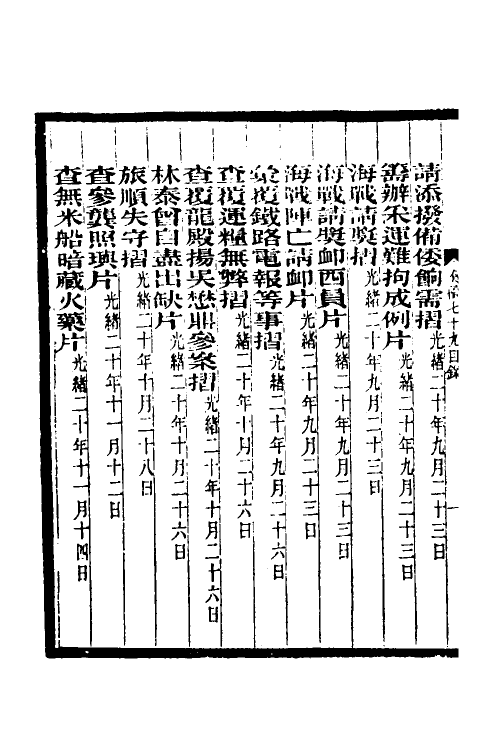 奏稿七十九目錄 一
請添撥備倭餉需摺 光緒二十年九月二十三日
籌辦米運難拘成例片 光緒二十年九月二十三日
海戰請獎摺 光緒二十年九月二十三日
海戰請獎卹西員片 光緒二十年九月二十三日
海戰陣亡請卹片 光緒二十年九月二十三日
彙覆鐵路電報等事摺 光緒二十年九月二十六日
查覆運糧無弊摺 光緒二十年十月二十六日
查覆龍殿揚吳懋鼎參案摺 光緒二十年十月二十六日
林泰曾自盡出缺片 光緒二十年十月二十六日
旅順失守摺 光緒二十年十月二十八日
查參龔照璵片 光緒二十年十一月十二日
查無米船暗藏火藥片 光緒二十年十一月十四日